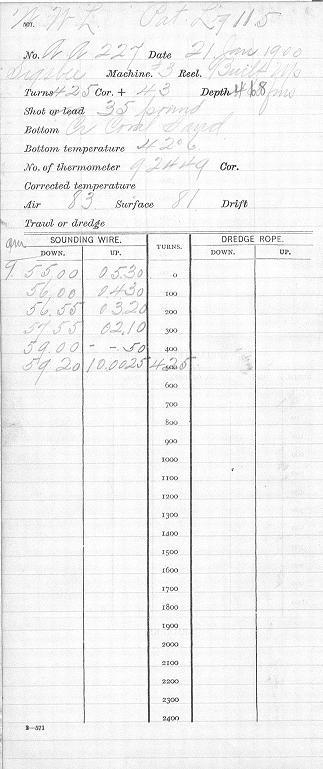 No. A A 227 Date 21 Jan 1900
Sigsbee Machine. 3 Reel. Built Up
Turns 425 Cor. + 43 Depth 468 fms
Shot or lead 35 pound
Bottom Co Coral Sand
Bottom temperature 42°6
No. of thermometer 92449 Cor.
Corrected temperature
Air 83 Surface 81 Drift
Trawl or dredge
am SOUNDING WIRE. TURNS. DREDGE ROPE.
DOWN. UP. DOWN. UP.
9 55.00 05.30 0
56.00 04.30 100
56.55 03.20 200
57.55 02.10 300
59.00 - -.50 400
59.20 10.0025 425 500
600
700
800
900
1000
1100
1200
1300
1400
1500
1600
1700
1800
1900
2000
2100
2200
2300
2400
B—571